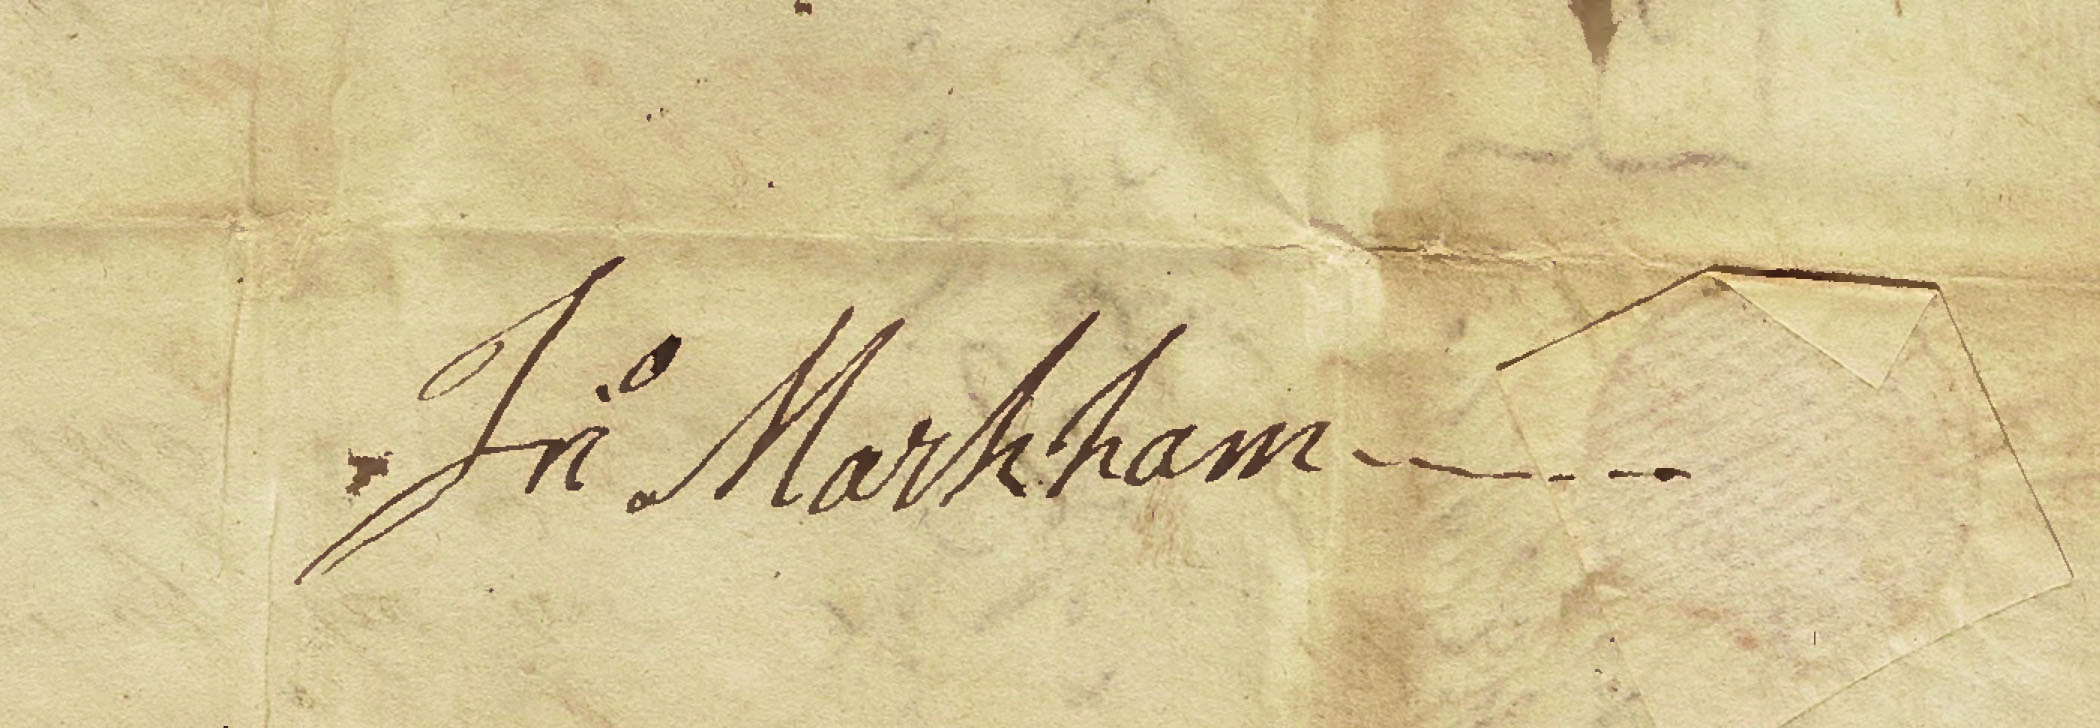 Jnº Markham